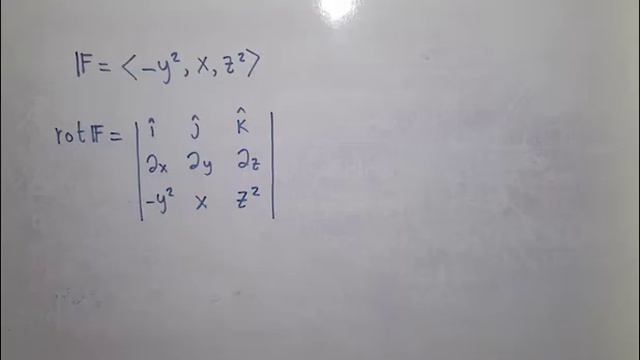 𝔽 = ⟨-y², x, z²⟩
rot 𝔽 = | î ĵ k̂ |
| ∂x ∂y ∂z |
| -y² x z² |